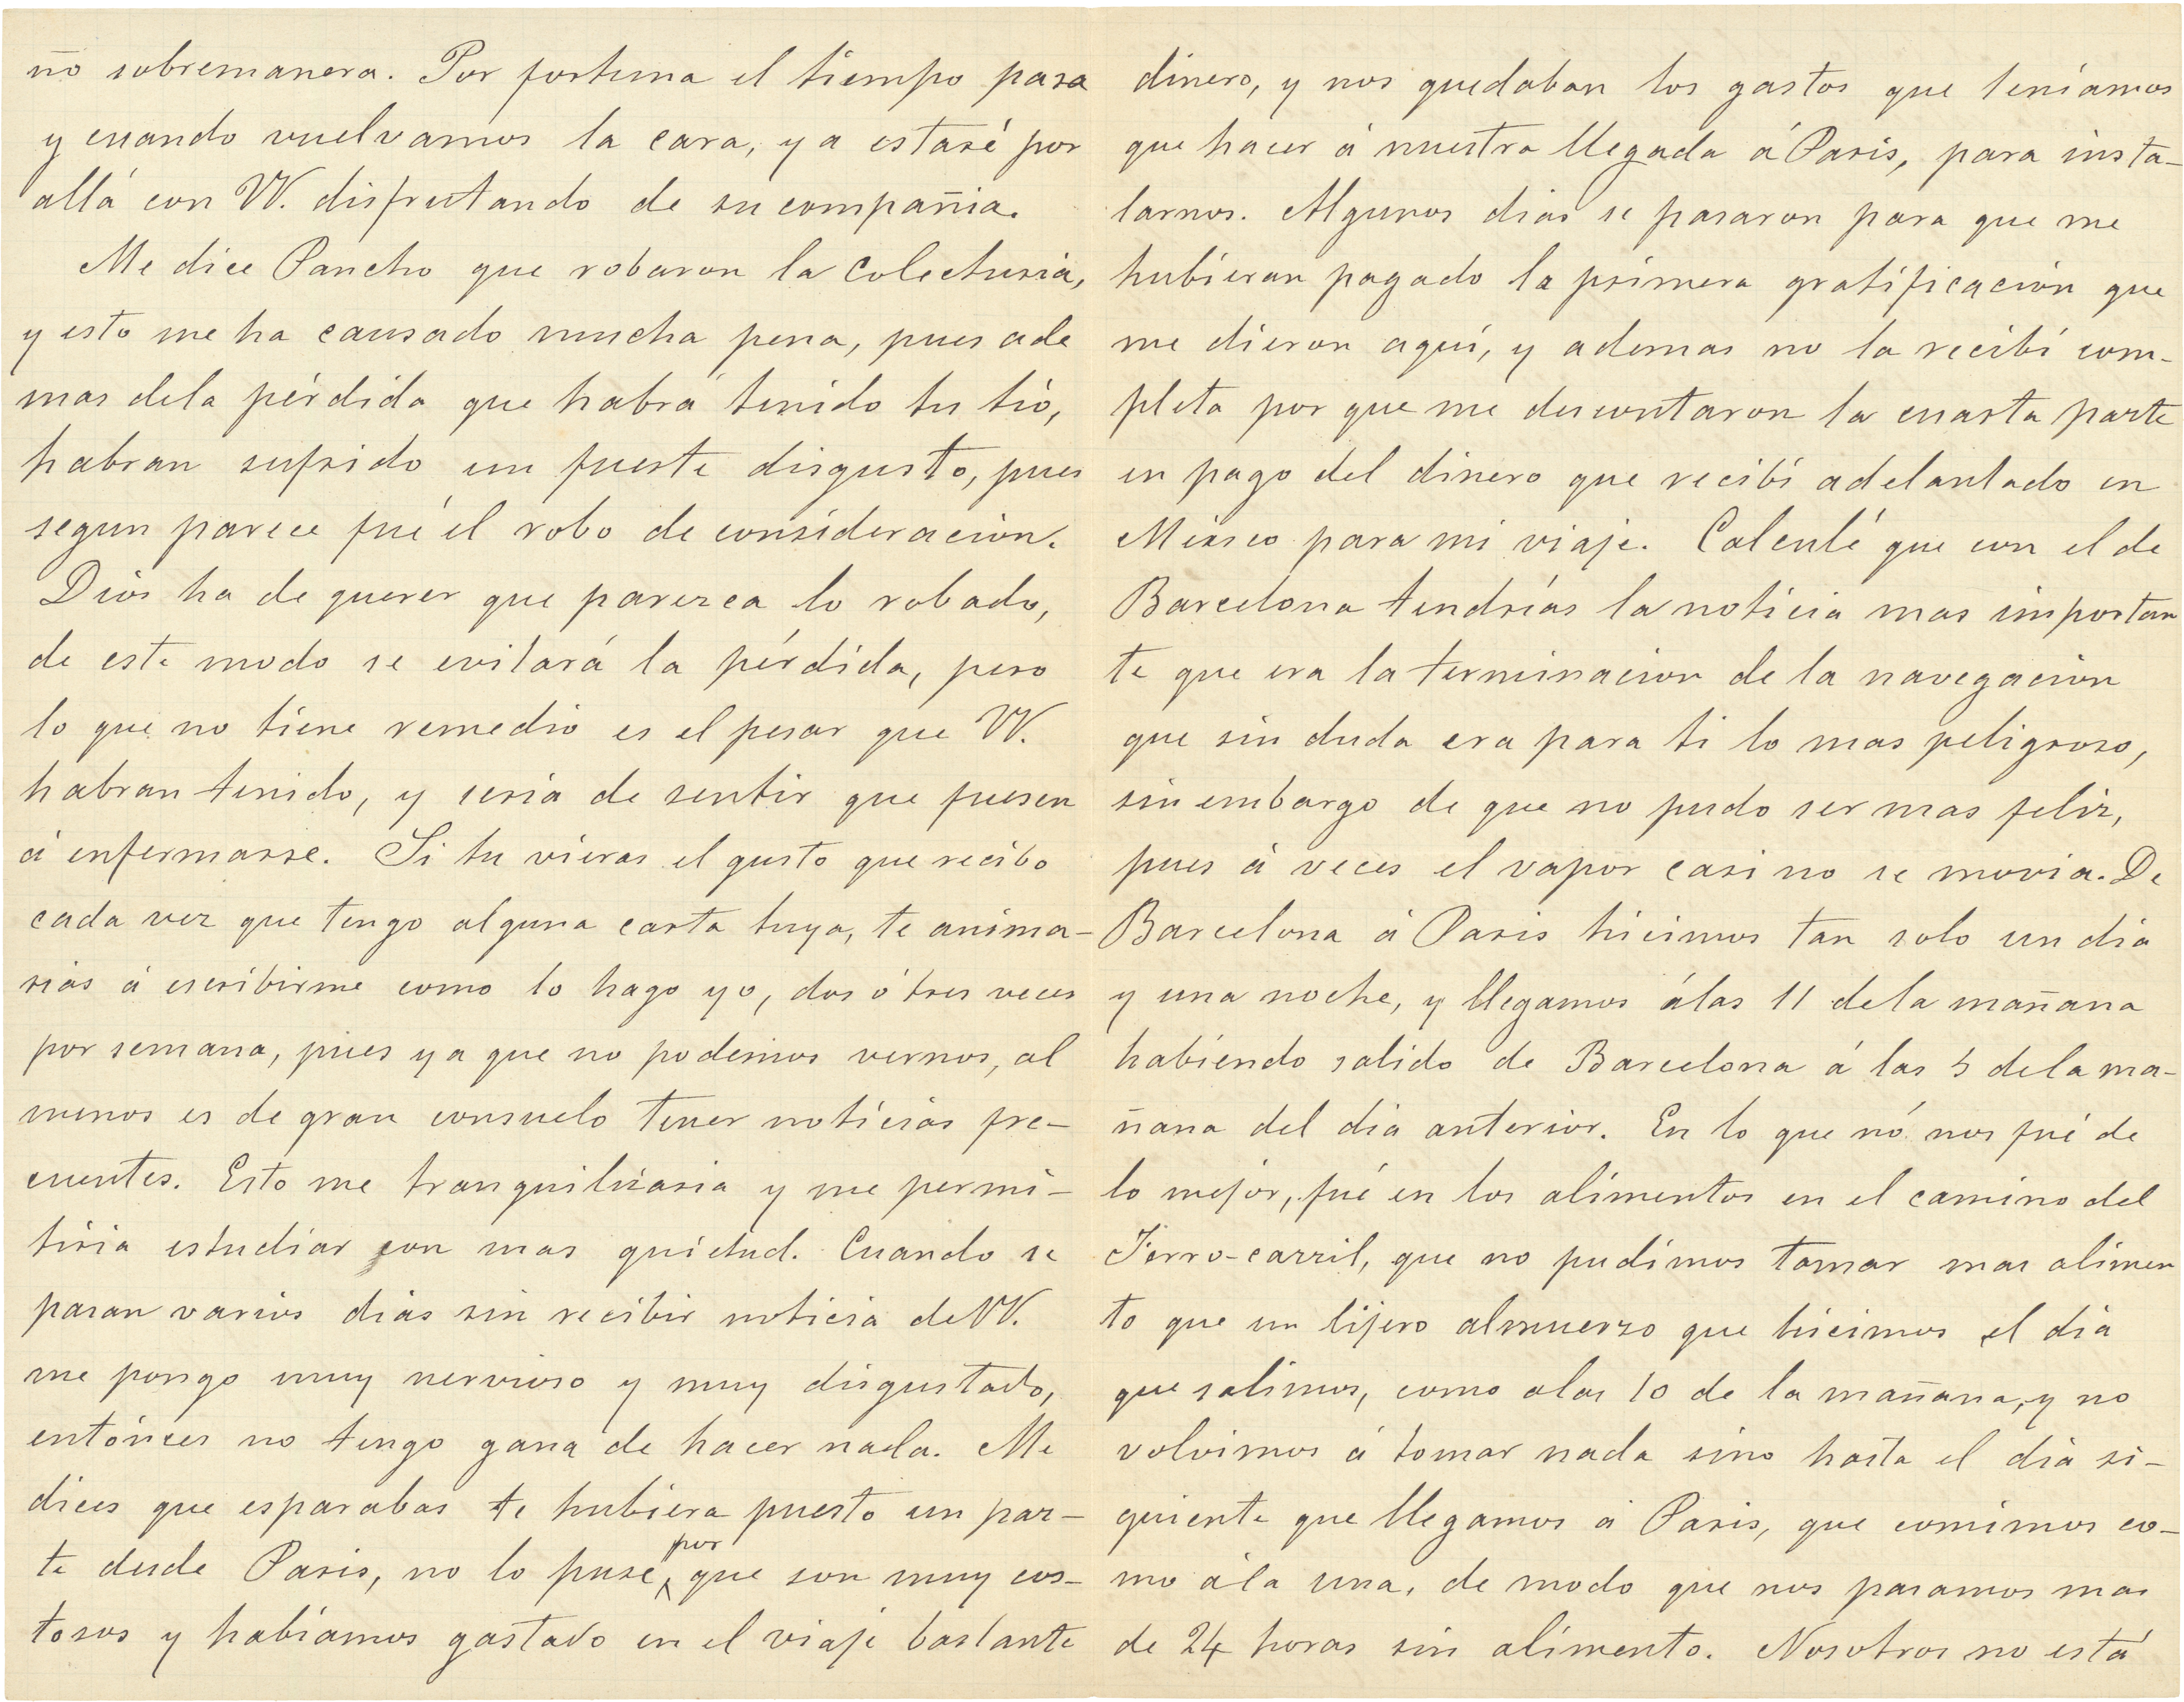 ño sobremanera. Por fortuna el tiempo pasa
y cuando vuelvamos la cara, ya estaré por
allá con VV. disfrutando de su compañia.
Me dice Pancho que robaron la Colecturia,
y esto me ha causado mucha pena, pues ade
mas dela pérdida que habrá tenido tu tio,
habran sufrido un fuerte disgusto, pues
segun parece fué el robo de consideracion.
Dios ha de querer que parezca lo robado,
de este modo se evitará la pérdida, pero
lo que no tiene remedio es el pesar que VV.
habran tenido, y seria de sentir que fuesen
á enfermarse. Si tu vieras el gusto que recibo
cada vez que tengo alguna carta tuya, te anima-
rias á escribirme como lo hago yo, dos ó tres veces
por semana, pues ya que no podemos vernos, al
menos es de gran consuelo tener noticias fre-
cuentes. Esto me tranquilizaria y me permi-
tiria estudiar con mas quietud. Cuando se
pasan varios dias sin recibir noticia de VV.
me pongo muy nervioso y muy disgustado,
entónces no tengo gana de hacer nada. Me
dices que esparabas te hubiera puesto un par-
te desde Paris, no lo puse, por que son muy cos-
tosos y habiamos gastado en el viaje bastante
dinero, y nos quedaban los gastos que teniamos
que hacer á nuestra llegada á Paris, para insta-
larnos. Algunos dias se pasaron para que me
hubieran pagado la primera gratificación que
me dieron aquí, y ademas no la recibí com-
pleta por que me descontaron la cuarta parte
en pago del dinero que recibí adelantado en
Mexico para mi viaje. Calculé que con el de
Barcelona tendrías la noticia mas importan
te que era la terminacion de la navegacion
que sin duda era para ti lo mas peligroso,
sin embargo de que no pudo ser mas feliz,
pues á veces el vapor casi no se movia. De
Barcelona á Paris hicimos tan solo un dia
y una noche, y llegamos á las 11 dela mañana
habiendo salido de Barcelona á las 5 dela ma-
ñana del dia anterior. En lo que nó nos fué de
lo mejor, fué en los alimentos en el camino del
Ferro-carril, que no pudimos tomar mas alimen
to que un lijero almuerzo que hicimos el dia
que salimos, como alas 10 de la mañana, y no
volvimos á tomar nada sino hasta el dia si-
guiente que llegamos á Paris, que comimos co-
mo á la una, de modo que nos pasamos mas
de 24 horas sin alimento. Nosotros no está